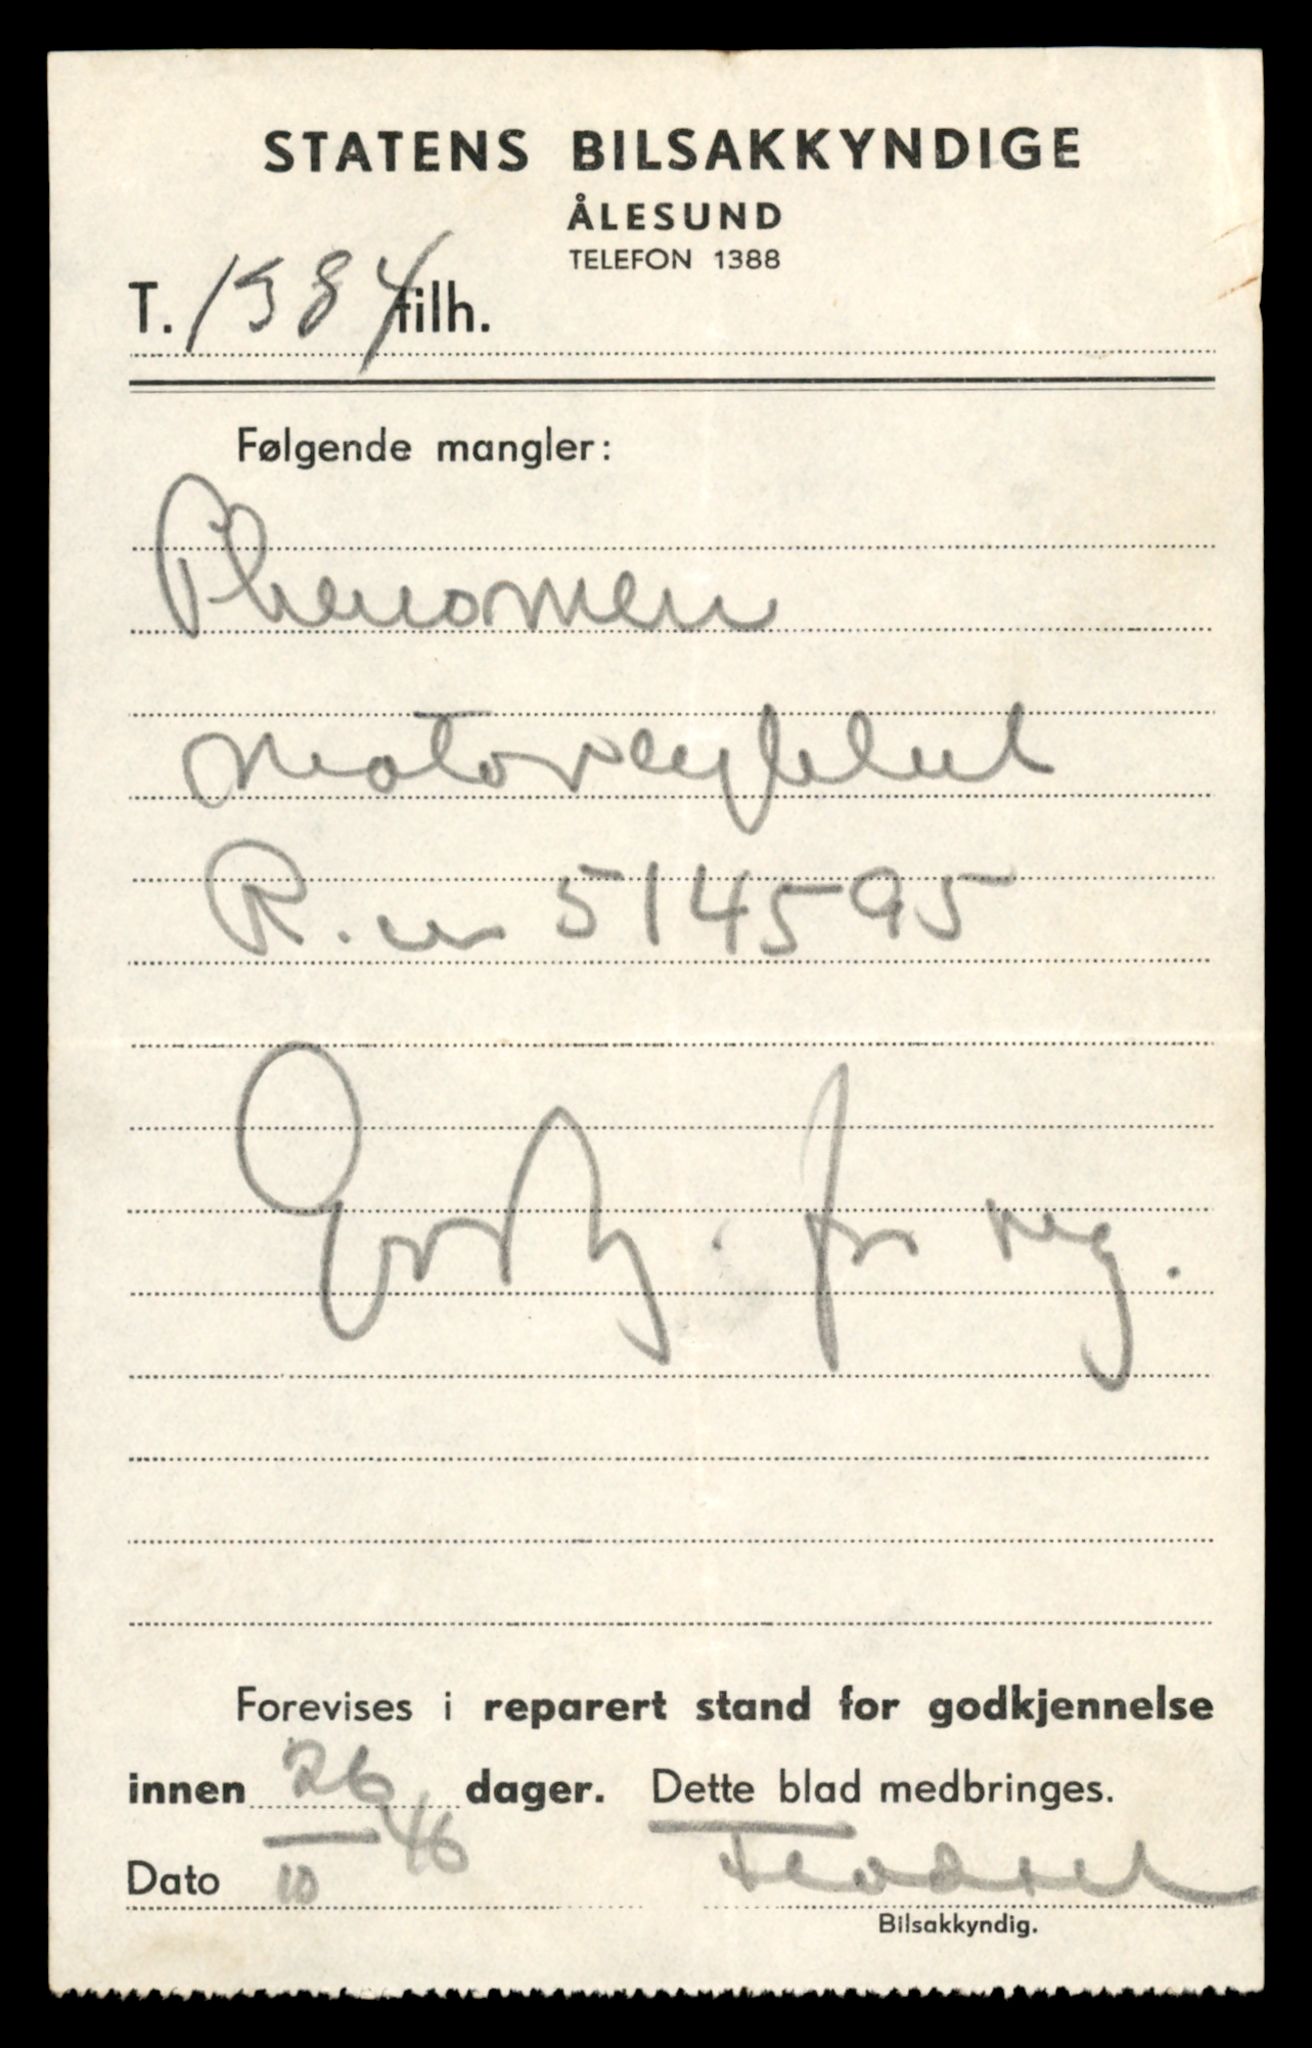 STATENS BILSAKKYNDIGE
ÅLESUND
TELEFON 1388
T. 1384 tilh.
Følgende mangler:
Phenomen
Motorcykkel
R.nr 514595
Godkj. for reg.
Forevises i reparert stand for godkjennelse
innen 26 dager. Dette blad medbringes.
Dato 10 46
Bilsakkyndig.